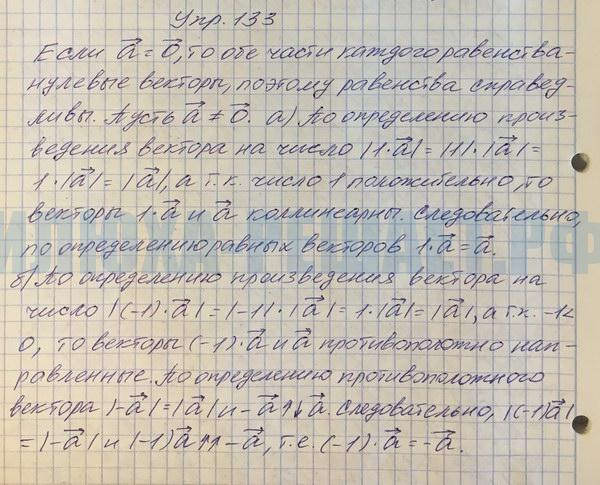 Упр. 133
Если a⃗ = 0⃗, то обе части каждого равенства-
нулевые векторы, поэтому равенства справед-
ливы. Пусть a⃗ ≠ 0⃗. а) По определению произ-
ведения вектора на число |1·a⃗| = |1|·|a⃗| =
1·|a⃗| = |a⃗|, а т.к. число 1 положительно, то
векторы 1·a⃗ и a⃗ коллинеарны. Следовательно,
по определению равных векторов 1·a⃗ = a⃗.
б) По определению произведения вектора на
число |(-1)·a⃗| = |-1|·|a⃗| = 1·|a⃗| = |a⃗|, а т.к. -1<
0, то векторы (-1)·a⃗ и a⃗ противоположно нап-
равленные. По определению противоположного
вектора |-a⃗| = |a⃗| и -a⃗ ↑↓ a⃗. Следовательно, |(-1)a⃗|
= |-a⃗| и (-1)a⃗ ↑↑ -a⃗, т.е. (-1)·a⃗ = -a⃗.